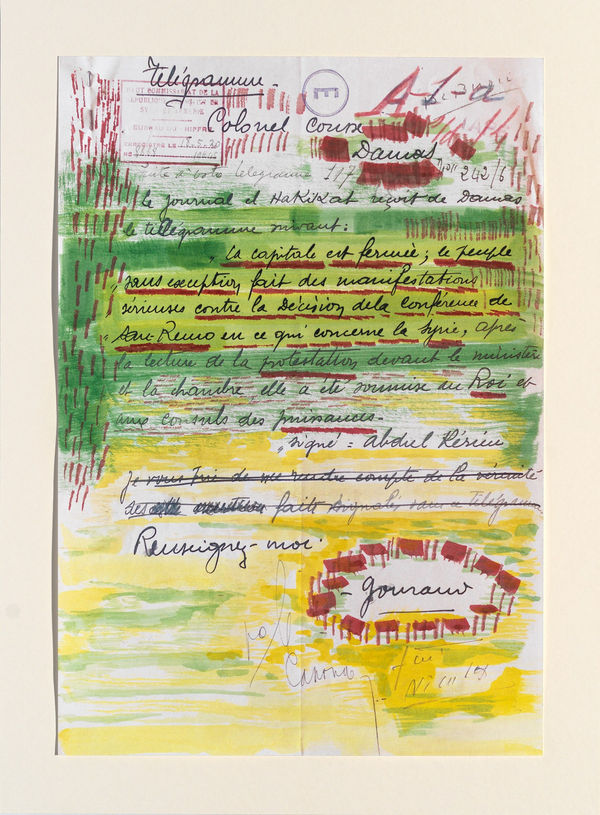 Télégramme
HAUT COMMISSARIAT DE LA
RÉPUBLIQUE
BUREAU DU CHIFFRE
ENREGISTRÉ LE
E
Colonel Cousse
Damas
suite à votre télégramme 117 242/6
Le journal el Hakikat reçoit de Damas
le télégramme suivant:
"La capitale est fermée; le peuple
"sans exception fait des manifestations
"sérieuses contre la Décision de la Conférence de
"San-Remo en ce qui concerne la Syrie, après
la lecture de la protestation devant le ministère
et la chambre, elle a été soumise au Roi et
aux consuls des puissances.
"signé = Abdul Kérim
Je vous prie de me rendre compte de la véracité
des faits signalés
Renseignez-moi.
- Gouraud